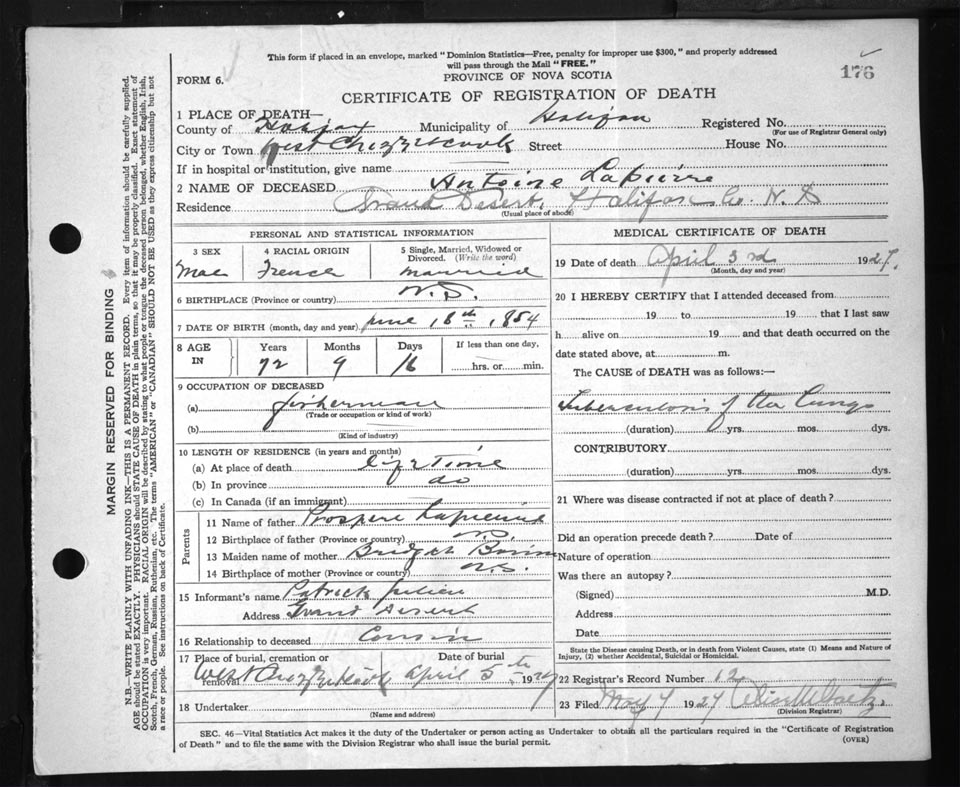 This form if placed in an envelope, marked "Dominion Statistics—Free, penalty for improper use $300," and properly addressed
will pass through the Mail "FREE."
176
FORM 6.
PROVINCE OF NOVA SCOTIA
CERTIFICATE OF REGISTRATION OF DEATH
1 PLACE OF DEATH—
County of Halifax Municipality of Halifax Registered No.
(For use of Registrar General only)
City or Town West Chezzetcook Street House No.
If in hospital or institution, give name
2 NAME OF DECEASED Antoine Lapierre
Residence Grand Desert, Halifax Co. N.S
(Usual place of abode)
PERSONAL AND STATISTICAL INFORMATION
3 SEX 4 RACIAL ORIGIN 5 Single, Married, Widowed or
Divorced. (Write the word)
Mae French married
6 BIRTHPLACE (Province or country) N.S.
7 DATE OF BIRTH (month, day and year) June 18th, 1854
8 AGE IN Years Months Days If less than one day,
72 9 16 hrs. or min.
9 OCCUPATION OF DECEASED
(a) fisherman
(Trade or occupation or kind of work)
(b)
(Kind of industry)
10 LENGTH OF RESIDENCE (in years and months)
(a) At place of death life Time
(b) In province do
(c) In Canada (if an immigrant)
Parents
11 Name of father Prospere Lapierre
12 Birthplace of father (Province or country) N.S.
13 Maiden name of mother Bridget
14 Birthplace of mother (Province or country) N.S.
15 Informant's name Patrick
Address Grand Desert
16 Relationship to deceased Cousin
17 Place of burial, cremation or removal Date of burial
West Chezzetcook April 5th 1927
18 Undertaker
(Name and address)
MEDICAL CERTIFICATE OF DEATH
19 Date of death April 3rd 1927.
(Month, day and year)
20 I HEREBY CERTIFY that I attended deceased from
19 to 19 that I last saw
h alive on 19 and that death occurred on
date stated above, at m.
The CAUSE of DEATH was as follows:—
Tuberculosis of the Lungs
(duration) yrs. mos. dys.
CONTRIBUTORY
(duration) yrs. mos. dys.
21 Where was disease contracted if not at place of death?
Did an operation precede death? Date of
Nature of operation
Was there an autopsy?
(Signed) M.D.
Address
Date
State the Disease causing Death, or in death from Violent Causes, state (1) Means and Nature of
Injury, (2) whether Accidental, Suicidal or Homicidal.
22 Registrar's Record Number 12
23 Filed May 7 1927
(Division Registrar)
SEC. 46—Vital Statistics Act makes it the duty of the Undertaker or person acting as Undertaker to obtain all the particulars required in the "Certificate of Registration
of Death" and to file the same with the Division Registrar who shall issue the burial permit.
(OVER)
MARGIN RESERVED FOR BINDING
N.B.—WRITE PLAINLY WITH UNFADING INK—THIS IS A PERMANENT RECORD. Every item of information should be carefully supplied.
AGE should be stated EXACTLY. PHYSICIANS should STATE CAUSE OF DEATH in plain terms, so that it may be properly classified. Exact statement of
OCCUPATION is very important. RACIAL ORIGIN will be described by stating to what people or tongue the deceased person belonged, whether English, Irish,
Scotch, French, German, Russian, Ruthenian, etc. The terms "AMERICAN" or "CANADIAN" SHOULD NOT BE USED as they express citizenship but not
a race or people. See instructions on back of Certificate.